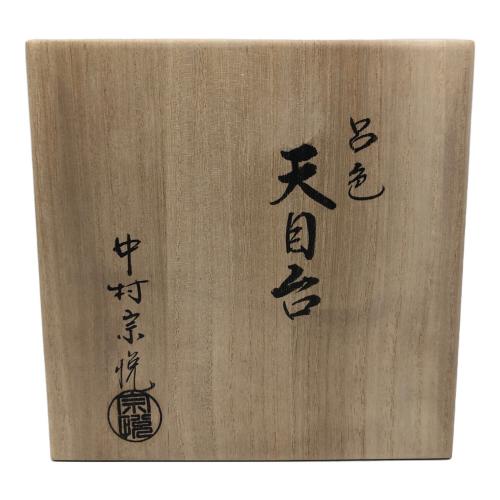 呂色
天目台
中村宗悦
宗悦